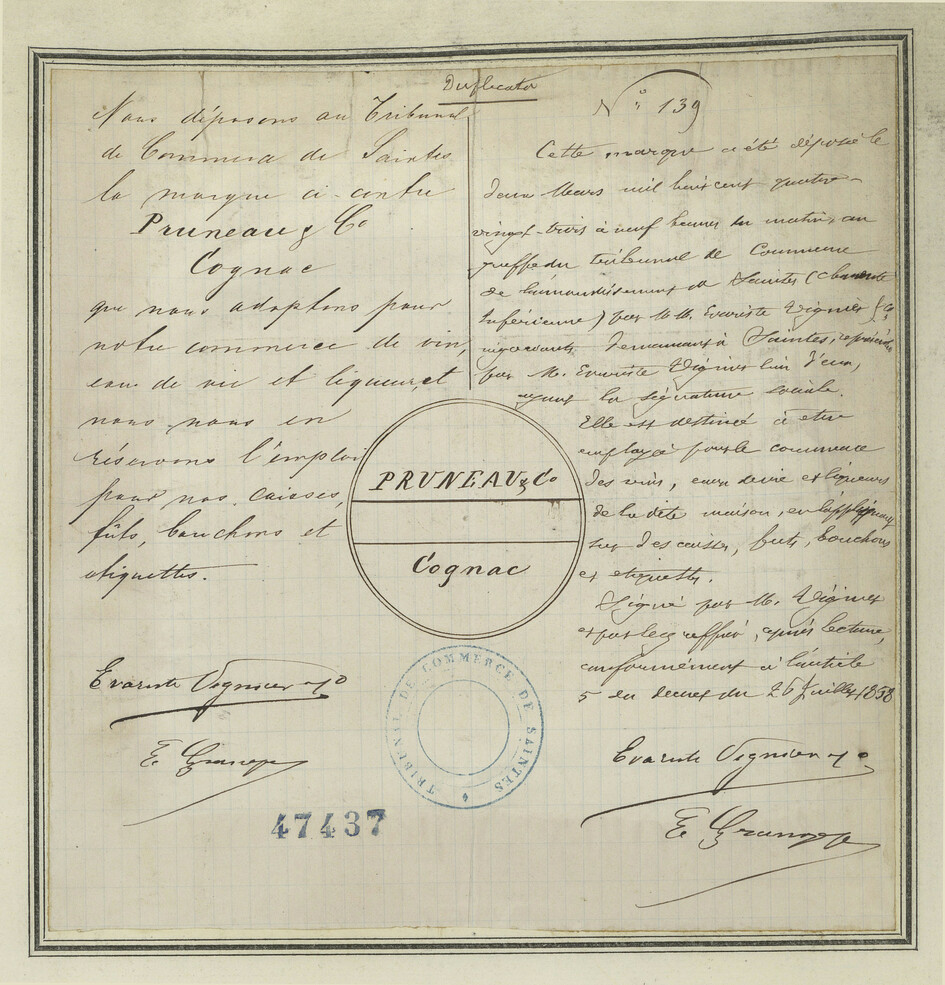 Duplicata
Nous déposons au Tribunal
de Commerce de Saintes
la marque ci-contre
Pruneau & Co
Cognac
que nous adoptons pour
notre commerce de vin,
eau de vie et liqueur, et
nous nous en
réservons l'emploi
pour nos caisses,
fûts, bouchons et
etiquettes.
Evariste Vignier & Co
N° 139
Cette marque a été déposée le
deux Mars mil huit cent quatre-
vingt-trois à neuf heures du matin, au
greffe du tribunal de Commerce
de l'arrondissement de Saintes (charente
Inférieure) par MM. Evariste Vignier & Co
négociants demeurant à Saintes, représentés
par M. Evariste Vignier l'un d'eux,
ayant la signature sociale.
Elle est destinée à etre
employée pour le commerce
des vins, eaux de vie et liqueurs
de la dite maison, en l'appliquant
sur des caisses, futs, bouchons
et etiquettes.
Signé par M. Vignier
et par le greffier, après lecture,
conformément à l'article
5 du decret du 26 Juillet 1858
Evariste Vignier & Co
PRUNEAU & Co
Cognac
TRIBUNAL DE COMMERCE DE SAINTES
47437